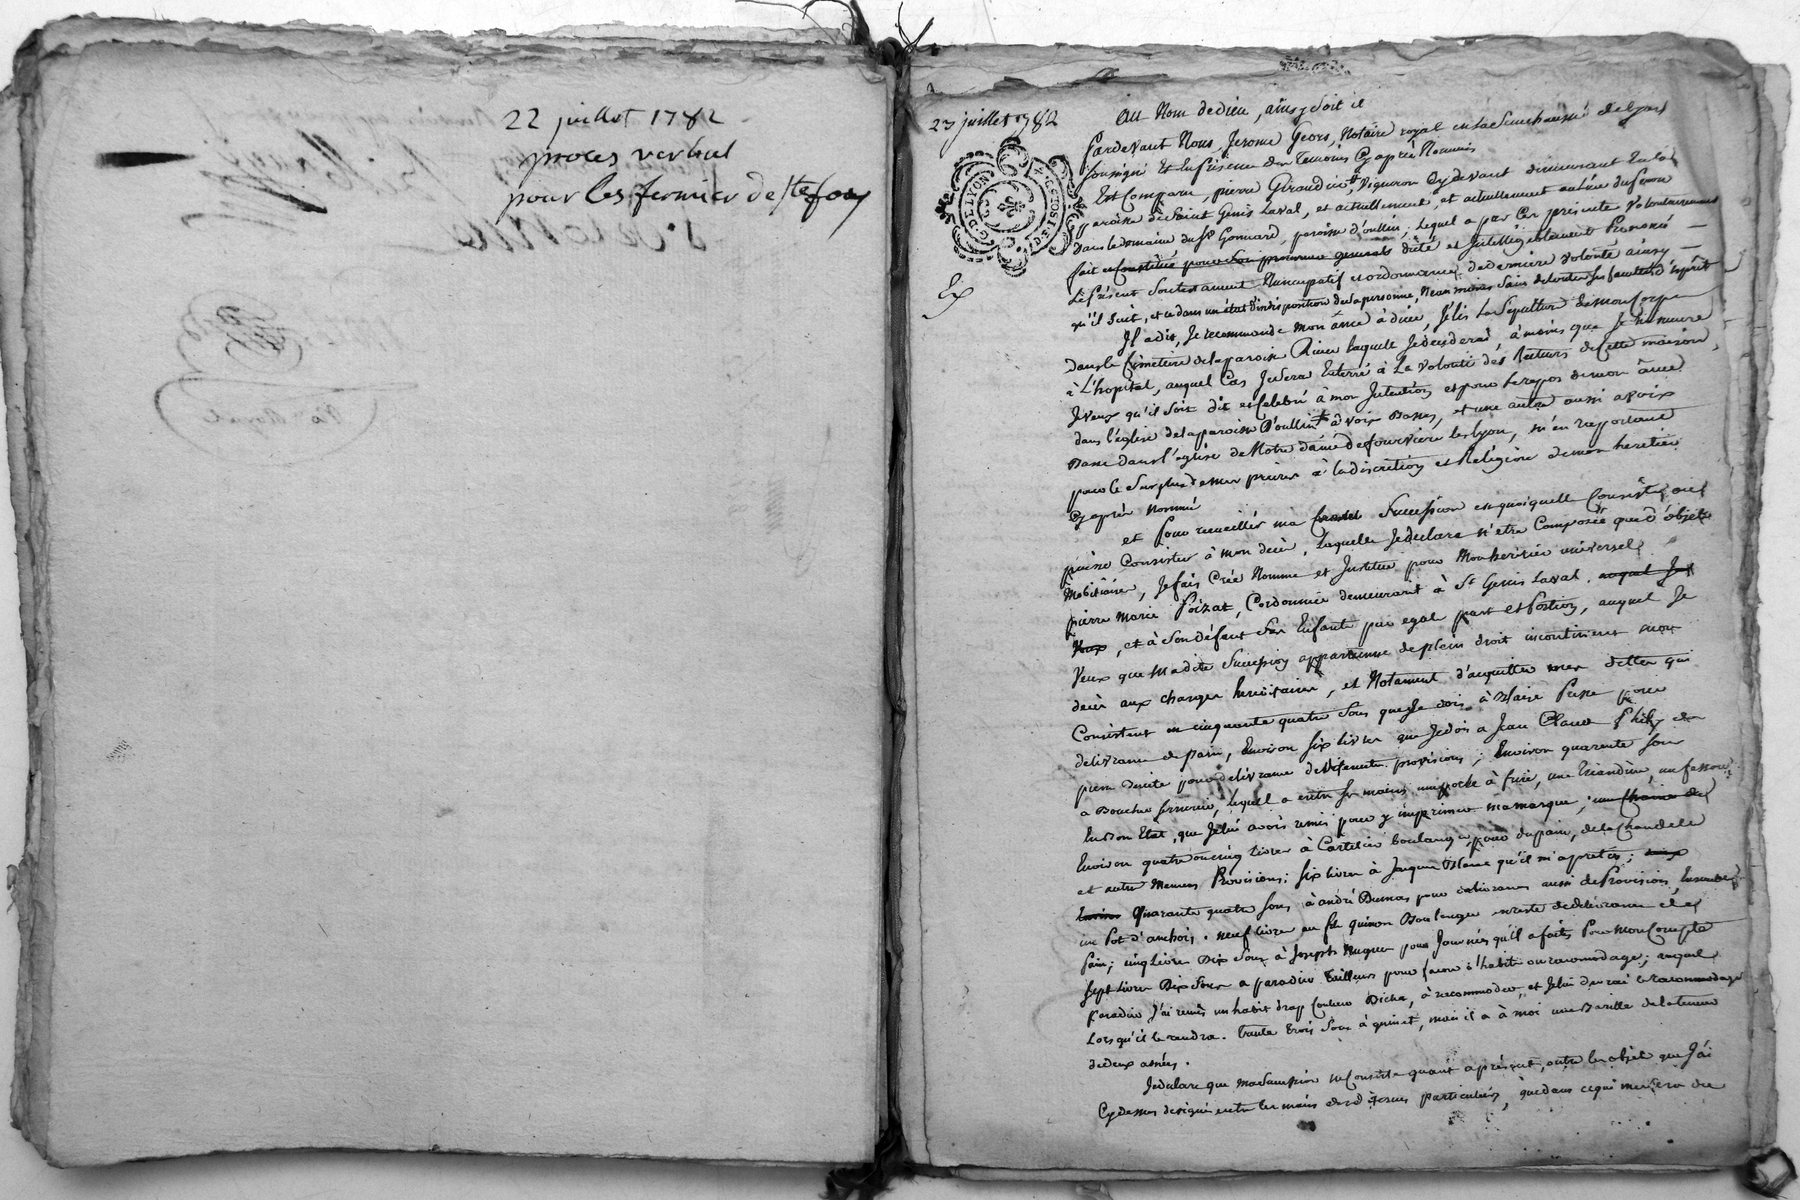 22 juillet 1782
procès verbal
pour les fermier de ste foy
23 juillet 1782
G. DE LYON
Ex
Au Nom de Dieu, ainsy soit il
Pardevant Nous, Jerome Geors, Notaire royal en la Senechaussée de Lyon
soussigné Et en présence des Temoins Cy après Nommés
Est Comparu pierre Giraudin, Vigneron Cy devant demeurant en la
paroisse de Saint Genis Laval, et actuellement, et actuellement au lieu
dans le domaine du Sr Gonnard, paroisse d'oullin, lequel a par Ces presentes Volontairement
fait et constitué pour son procureur general dicté et Intelligiblement Prononcé
le présent son testament Nuncupatif et ordonnance de derniere volonté ainsy
qu'il suit, et ce dans un état d'indisposition de sa personne, Neanmoins sain de toutes ses facultés d'esprit
Il a dit, Je recommande mon âme à dieu, J'élis La sépulture de mon Corps
dans le Cimetiere de la paroisse Riere laquelle Je decederai, à moins que Je ne meure
à L'hopital, auquel Cas Je serai Enterré à La volonté des Recteurs de Cette maison,
Je veux qu'il soit dit et Celebré à mon Intention et pour le repos de mon âme
dans l'église de la paroisse d'oullin à voix Basse, et une autre aussi à voix
Basse dans l'église de Notre dame de fourviere les Lyon, m'en rapportant
pour le surplus de mes prieres à la discretion et Religion de mon heritier
Cy après nommé
et pour recueillir ma succession en quoi qu'elle Consiste, ou
puisse Consister à mon decès, laquelle Je declare n'etre Composée que d'objets
Mobiliaires, Je fais Créé Nomme et Institue pour Mon heritier universel
pierre Marie Poizat, Cordonnier demeurant à St Genis Laval, auquel Je
Veux, et à son défaut ses Enfants par egale part et Portion, auquel Je
Veux que Madite Succession appartienne de plein droit incontinent mon
decès aux charges hereditaires, et Notament d'acquitter mes dettes qui
Consistent en cinquante quatre sous que Je dois à Blaise pour
delivrance de pain, Environ six livres que Je dois a Jean Claude
pour delivrance de differentes provisions; Environ quarante sous
a Bouchu serrurier, lequel a entre ses mains une poche à frire, une
En Bon Etat, que Je lui avois remis pour y imprimer ma marque;
Environ quatre ou cinq livres à Cartelier boulanger pour du pain, de la Chandele
et autres Menues Provisions; six livres à Jacques qu'il m'a pretés;
Environ Quarante quatre sous à andré Dumas pour delivrance aussi de Provisions,
un Pot d'anchois. neuf livres au fils quinon Boulanger en reste de delivrance de
Pain; cinq Livres Dix Sous à Joseph pour Journées qu'il a faits Pour mon Compte
sept livres Dix Sous a paradin Tailleur pour façon d'habits ou racomodage; auquel
paradin J'ai remis un habit drap Couleur Biche, à recommoder, et Je lui devrai le racommodage
Lors qu'il le rendra. trente trois sous à quinet, mais il a à moi une Barille de la teneur
de deux anées.
Je declare que ma Succession ne Consiste quant a présent, outre les objets que J'ai
Cy dessus designé entre les mains de diverses particuliers, que dans ce qui me sera du